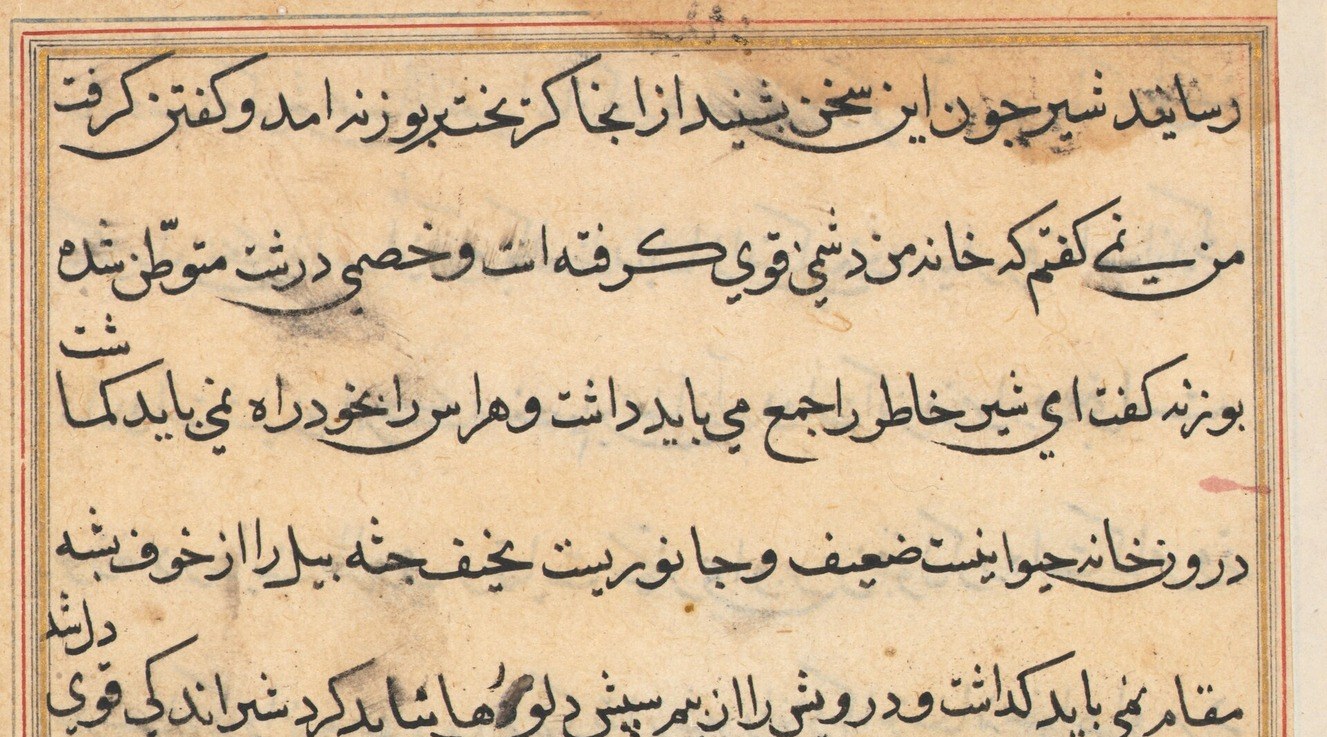 رسانید شیر جون این سخن بشنید از انجا کریخت بر بوزنه امد و کفتن کرفت
من نمی کفتم که خانه من دشمنی قوی کرفته است و خصمی درشت متوطّن شده
شت
بوزنه کفت ای شیر خاطر را جمع می باید داشت و هراس را بخود راه نمی باید کما
درون خانه حیوانیست ضعیف و جانوریست نحیف جثه بیل را از خوف بشه
دل شد
مقام نمی باید کداشت و درویش را از بیم سپش دلو رها نباید کرد شیر اندکی قوی